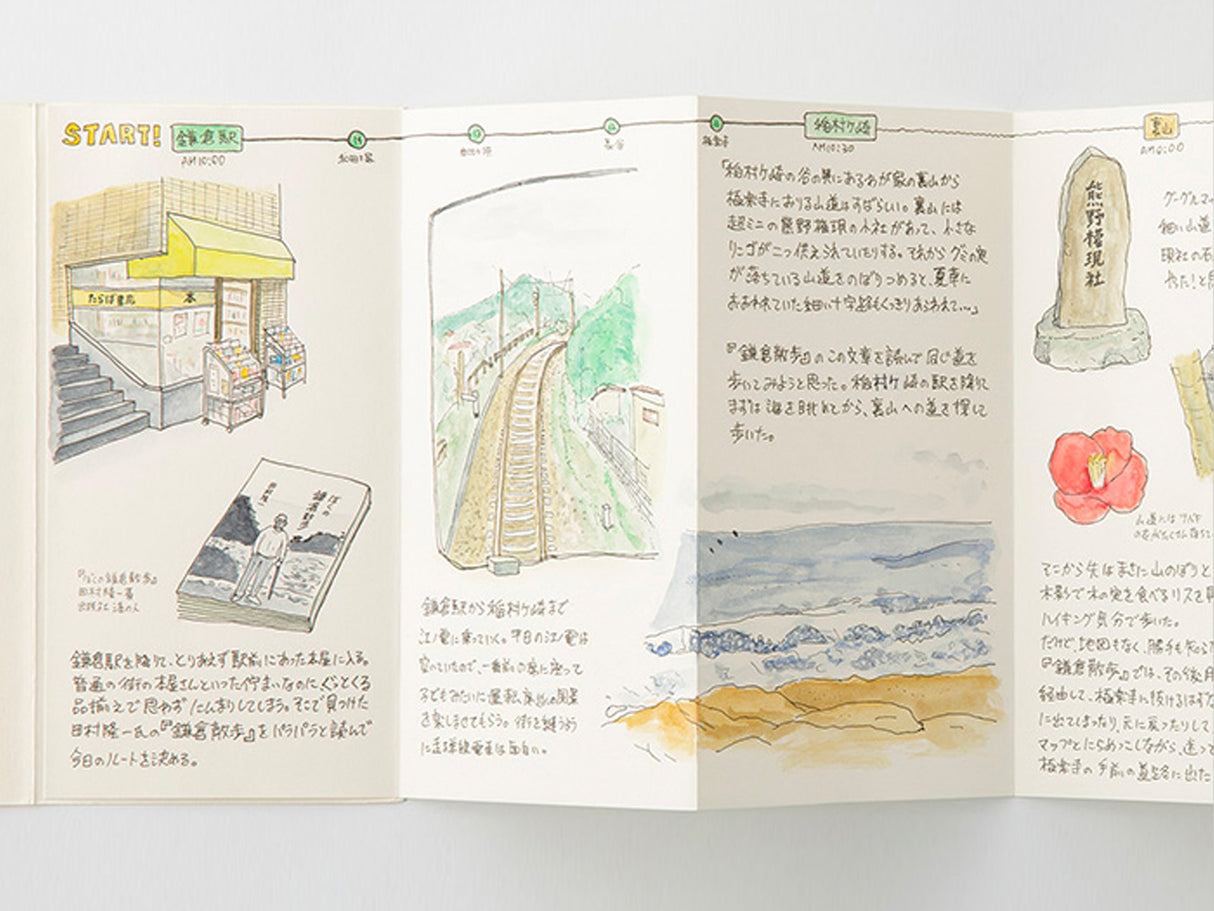 START! 鎌倉駅
AM10:00
和田塚
由比ヶ浜
長谷
極楽寺
稲村ヶ崎
AM10:30
裏山
たらば書房 本
ぼくの
鎌倉散歩
田村隆一
『ぼくの鎌倉散歩』
田村隆一著
出版社 港の人
鎌倉駅を降りて、とりあえず駅前にあった本屋に入る。
普通の街の本屋さんといった佇まいなのに、ぐっとくる
品揃えで思わずたんまりしてしまう。そこで見つけた
田村隆一氏の『鎌倉散歩』をパラパラと読んで
今日のルートを決める。
鎌倉駅から稲村ヶ崎まで
江ノ電に乗っていく。平日の江ノ電は
空いていたので、一番前の席に座って
子どもみたいに運転席気分の風景
を楽しませてもらう。街を縫うように
走る単線電車は面白い。
「稲村ヶ崎の谷の奥にあるわが家の裏山から
極楽寺におりる山道はすばらしい。裏山には
超ミニの熊野権現の小社があって、小さな
リンゴが二つ供えられていたりする。それからグミの実
が落ちている山道をのぼりつめると、夏草に
おおわれていた細い十字路もくっきりあらわれて…」
『鎌倉散歩』のこの文章を読んで同じ道を
歩いてみようと思った。稲村ヶ崎の駅を降りて
まずは海を眺めてから、裏山への道を探して
歩いた。
熊野権現社
グーグルマッ
細い山道
現社の石
やった!と
山道にはツバキ
の花がたくさん落ちて
そこから先はまさに山のぼりと
木影で木の実を食べるリスを
ハイキング気分で歩いた。
だけど、地図もなく、勝手も知らな
『鎌倉散歩』では、その後
経由して、極楽寺に抜けるはずが
に出てしまったり、元に戻ったりして
マップとにらめっこしながら、迷って
極楽寺の手前の道路に出た